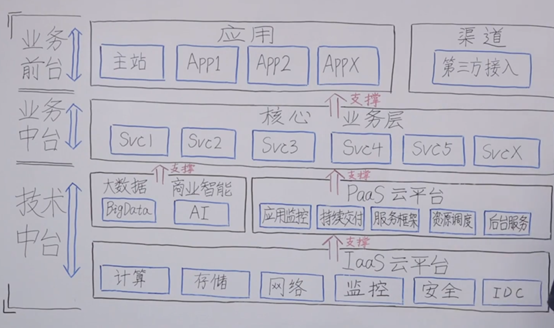 业务
前台
应用
主站
App1
App2
AppX
渠道
第三方接入
支撑
业务
中台
核心 业务层
Svc1
Svc2
Svc3
Svc4
Svc5
SvcX
支撑
支撑
技术
中台
大数据
BigData
商业智能
AI
PaaS云平台
应用监控
持续交付
服务框架
资源调度
后台服务
支撑
IaaS云平台
计算
存储
网络
监控
安全
IDC